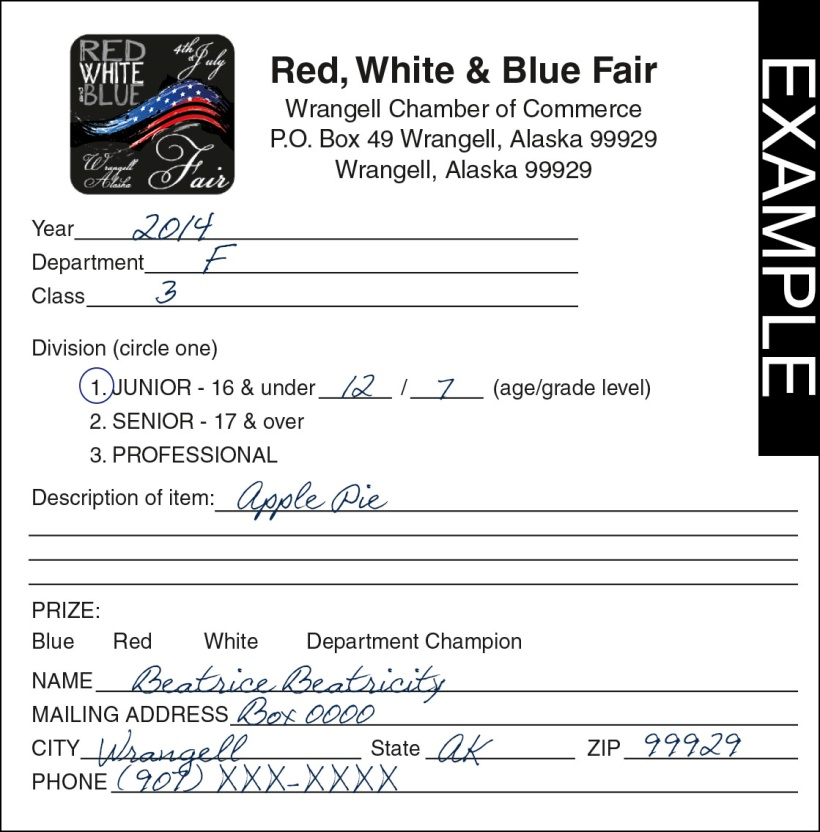 RED
WHITE
and
BLUE
4th
of
July
Wrangell
Alaska
Fair
Red, White & Blue Fair
Wrangell Chamber of Commerce
P.O. Box 49 Wrangell, Alaska 99929
Wrangell, Alaska 99929
EXAMPLE
Year 2014
Department F
Class 3
Division (circle one)
1. JUNIOR - 16 & under 12 / 7 (age/grade level)
2. SENIOR - 17 & over
3. PROFESSIONAL
Description of item: Apple Pie
PRIZE:
Blue Red White Department Champion
NAME Beatrice Beatricity
MAILING ADDRESS Box 0000
CITY Wrangell State AK ZIP 99929
PHONE (907) XXX-XXXX